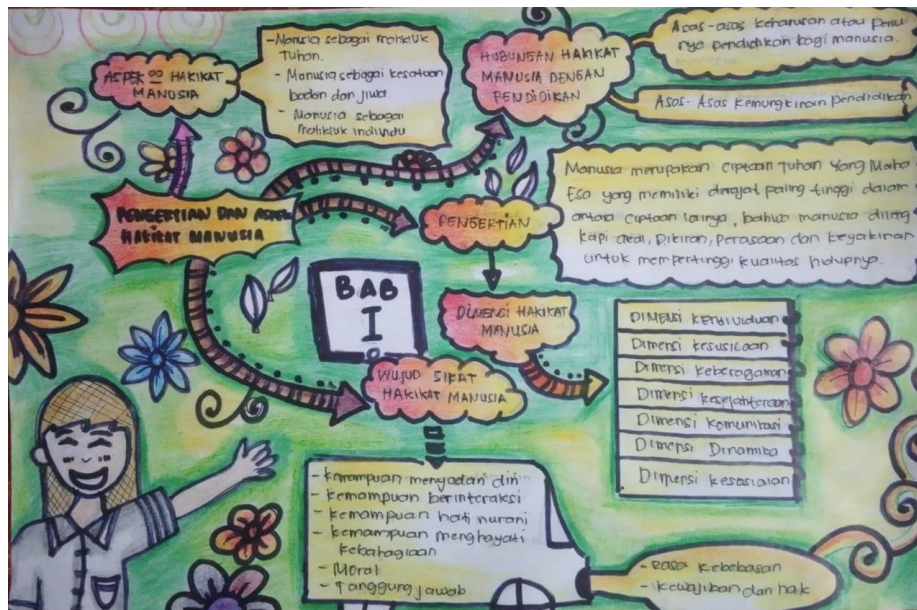 ASPEK² HAKIKAT
MANUSIA
-Manusia sebagai mahkluk
Tuhan.
- Manusia sebagai kesatuan
badan dan jiwa
- Manusia sebagai
mahkluk individu
HUBUNGAN HAKIKAT
MANUSIA DENGAN
PENDIDIKAN
Asas-asas keharusan atau perlu
nya pendidikan bagi manusia.
Asas-Asas kemungkinan pendidikan
PENGERTIAN DAN ASPEK
HAKIKAT MANUSIA
PENGERTIAN
Manusia merupakan ciptaan Tuhan Yang Maha
Esa yang memiliki derajat paling tinggi dalam
antara ciptaan lainya, bahwa manusia dileng
kapi akal, Pikiran, Perasaan dan keyakinan
untuk mempertinggi kualitas hidupnya.
BAB
I
DIMENSI HAKIKAT
MANUSIA
DIMENSI
Dimensi kesusilaan
Dimensi keberagaman
Dimensi kesejahteraan
Dimensi komunikasi
Dimensi Dinamika
Dimensi kesosialan
WUJUD SIFAT
HAKIKAT MANUSIA
- kemampuan menyadari diri
- kemampuan berinteraksi
- kemampuan hati nurani
- kemampuan menghayati
kebahagiaan
- Moral
- Tanggung jawab
- Rasa kebebasan
- kewajiban dan hak